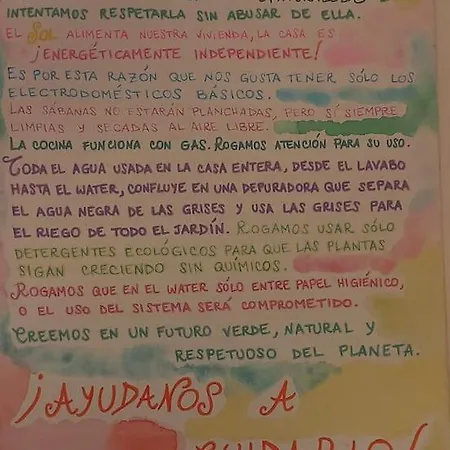 INTENTAMOS RESPETARLA SIN ABUSAR DE ELLA.
EL SOL ALIMENTA NUESTRA VIVIENDA, LA CASA ES
¡ENERGÉTICAMENTE INDEPENDIENTE!
ES POR ESTA RAZÓN QUE NOS GUSTA TENER SÓLO LOS
ELECTRODOMÉSTICOS BÁSICOS.
LAS SÁBANAS NO ESTARÁN PLANCHADAS, PERO SÍ SIEMPRE
LIMPIAS Y SECADAS AL AIRE LIBRE.
LA COCINA FUNCIONA CON GAS. ROGAMOS ATENCIÓN PARA SU USO.
TODA EL AGUA USADA EN LA CASA ENTERA, DESDE EL LAVABO
HASTA EL WATER, CONFLUYE EN UNA DEPURADORA QUE SEPARA
EL AGUA NEGRA DE LAS GRISES Y USA LAS GRISES PARA
EL RIEGO DE TODO EL JARDÍN. ROGAMOS USAR SÓLO
DETERGENTES ECOLÓGICOS PARA QUE LAS PLANTAS
SIGAN CRECIENDO SIN QUÍMICOS.
ROGAMOS QUE EN EL WATER SÓLO ENTRE PAPEL HIGIÉNICO,
O EL USO DEL SISTEMA SERÁ COMPROMETIDO.
CREEMOS EN UN FUTURO VERDE, NATURAL Y
RESPETUOSO DEL PLANETA.
¡AYUDANOS A
CUIDARLO!